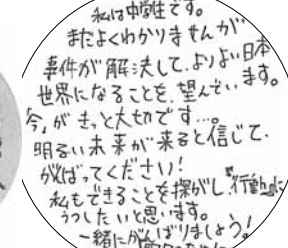 私は中学生です。
まだよくわかりませんが
事件が解決して、よりよい日本
世界になることを、望んでいます。
今、がきっと大切です…。
明るい未来が来ると信じて、
がんばってください!
私もできることを探がし、『行動』に
うつしたいと思います。
一緒にがんばりましょう!